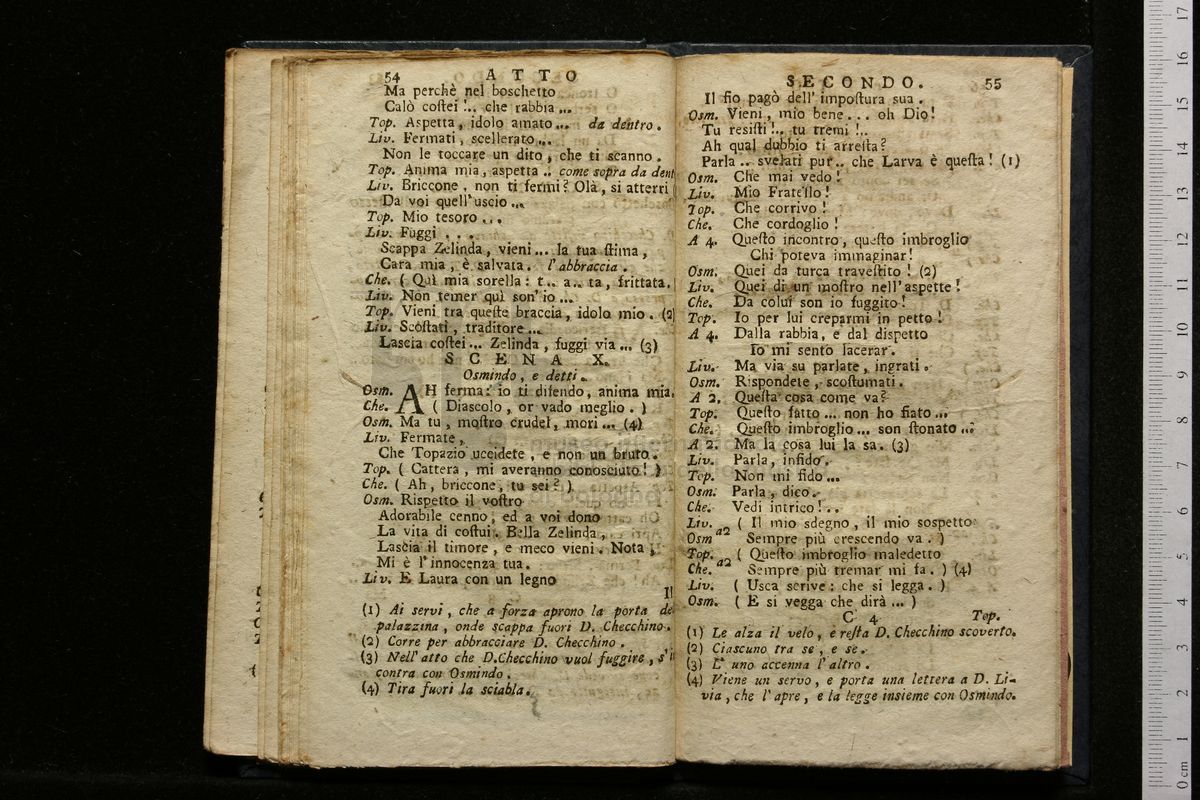 54 ATTO
Ma perchè nel boschetto
Calò coſtei !.. che rabbia ...
Top. Aspetta, idolo amato... da dentro.
Liv. Fermati, scellerato...
Non le toccare un dito, che ti scanno.
Top. Anima mia, aspetta .. come sopra da dent
Liv. Briccone, non ti fermi? Olà, si atterri (
Da voi quell' uscio ...
Top. Mio tesoro ...
Liv. Fuggi ...
Scappa Zelinda, vieni... la tua ſtima,
Cara mia, è salvata. l'abbraccia.
Che. ( Quì mia sorella: t.. a.. ta, frittata.
Liv. Non temer quì son' io ...
Top. Vieni tra queſte braccia, idolo mio. (2)
Liv. Scoſtati, traditore...
Lascia coſtei... Zelinda, fuggi via... (3)
SCENA X.
Osmindo, e detti.
Osm. AH ferma: io ti difendo, anima mia.
Che. ( Diascolo, or vado meglio. )
Osm. Ma tu, moſtro crudel, mori... (4)
Liv. Fermate,
Che Topazio uccidete, e non un bruto.
Top. ( Cattera, mi averanno conosciuto! )
Che. ( Ah, briccone, tu sei? )
Osm. Rispetto il voſtro
Adorabile cenno; ed a voi dono
La vita di coſtui. Bella Zelinda,
Lascia il timore, e meco vieni. Nota
Mi è l'innocenza tua.
Liv. E Laura con un legno
Il
(1) Ai servi, che a forza aprono la porta de
palazzina, onde scappa fuori D. Checchino.
(2) Corre per abbracciare D. Checchino.
(3) Nell' atto che D.Checchino vuol fuggire, s'in
contra con Osmindo.
(4) Tira fuori la sciabla.
SECONDO. 55
Il fio pagò dell' impoſtura sua.
Osm. Vieni, mio bene... oh Dio!
Tu resiſti !.. tu tremi !..
Ah qual dubbio ti arreſta?
Parla .. svelati pur.. che Larva è queſta! (1)
Osm. Che mai vedo!
Liv. Mio Fratello!
Top. Che corrivo!
Che. Che cordoglio!
A 4. Queſto incontro, queſto imbroglio
Chi poteva immaginar!
Osm. Quei da turca traveſtito! (2)
Liv. Quei di un moſtro nell' aspette!
Che. Da colui son io fuggito!
Top. Io per lui creparmi in petto!
A 4. Dalla rabbia, e dal dispetto
Io mi sento lacerar.
Liv. Ma via su parlate, ingrati.
Osm. Rispondete, scoſtumati.
A 2. Queſta cosa come va?
Top. Queſto fatto ... non ho fiato ...
Che. Queſto imbroglio... son ſtonato ...
A 2. Ma la cosa lui la sa. (3)
Liv. Parla, infido.
Top. Non mi fido...
Osm. Parla, dico.
Che. Vedi intrico!..
Liv. ( Il mio sdegno, il mio sospetto
Osm a2 Sempre più crescendo va. )
Top. ( Queſto imbroglio maledetto
Che. a2 Sempre più tremar mi fa. ) (4)
Liv. ( Usca scrive: che si legga. )
Osm. ( E si vegga che dirà ... )
C 4 Top.
(1) Le alza il velo, e reſta D. Checchino scoverto.
(2) Ciascuno tra se, e se.
(3) L' uno accenna l'altro.
(4) Viene un servo, e porta una lettera a D. Li-
via, che l'apre, e la legge insieme con Osmindo.
0 cm 1 2 3 4 5 6 7 8 9 10 11 12 13 14 15 16 17